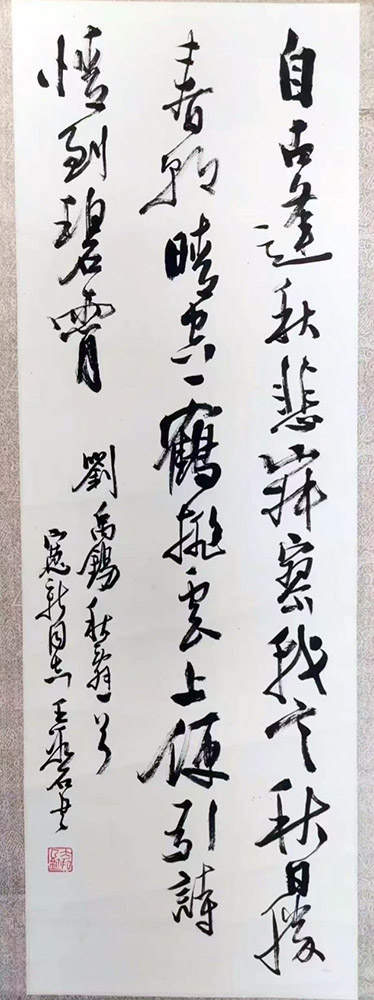 自古逢秋悲寂寥我言秋日勝
春朝晴空一鶴排雲上便引詩
情到碧霄
劉禹錫秋詞一首
新同志王石書